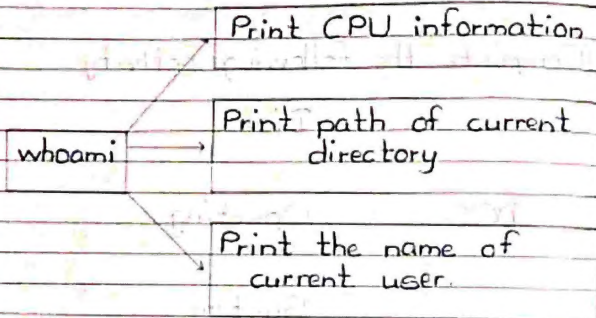 Print CPU information
Print path of current
directory
whoami
Print the name of
current user.